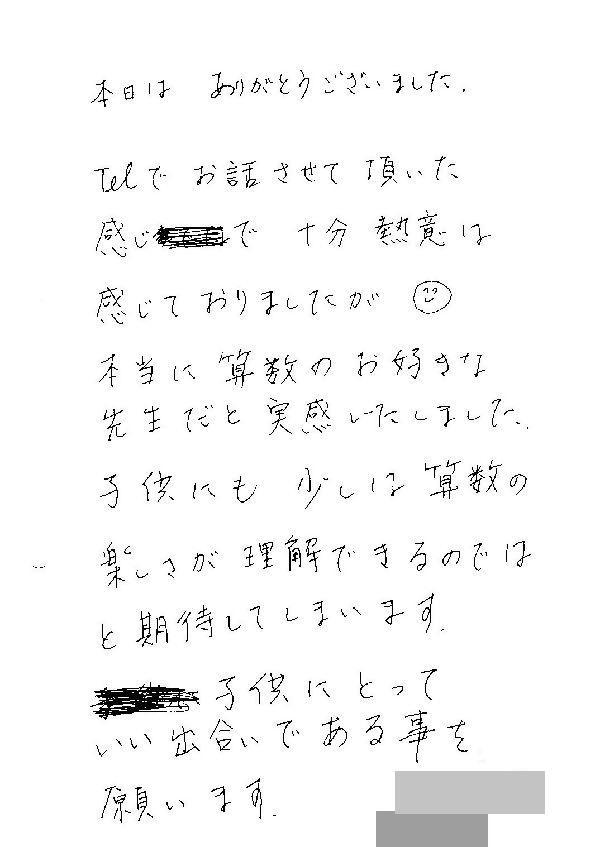 本日は ありがとうございました.
Telで お話させて 頂いた
感じで 十分 熱意は
感じておりましたが
本当に 算数の お好きな
先生だと 実感いたしました.
子供にも 少しは 算数の
楽しさが 理解できるのでは
と 期待してしまいます.
子供にとって
いい出合いである事を
願います.